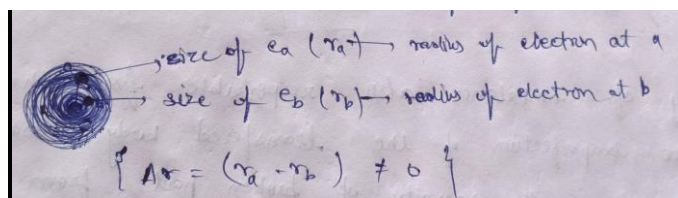 size of ea (ra) → radius of electron at a
size of eb (rb) → radius of electron at b
{ Δr = (ra - rb) ≠ 0 }